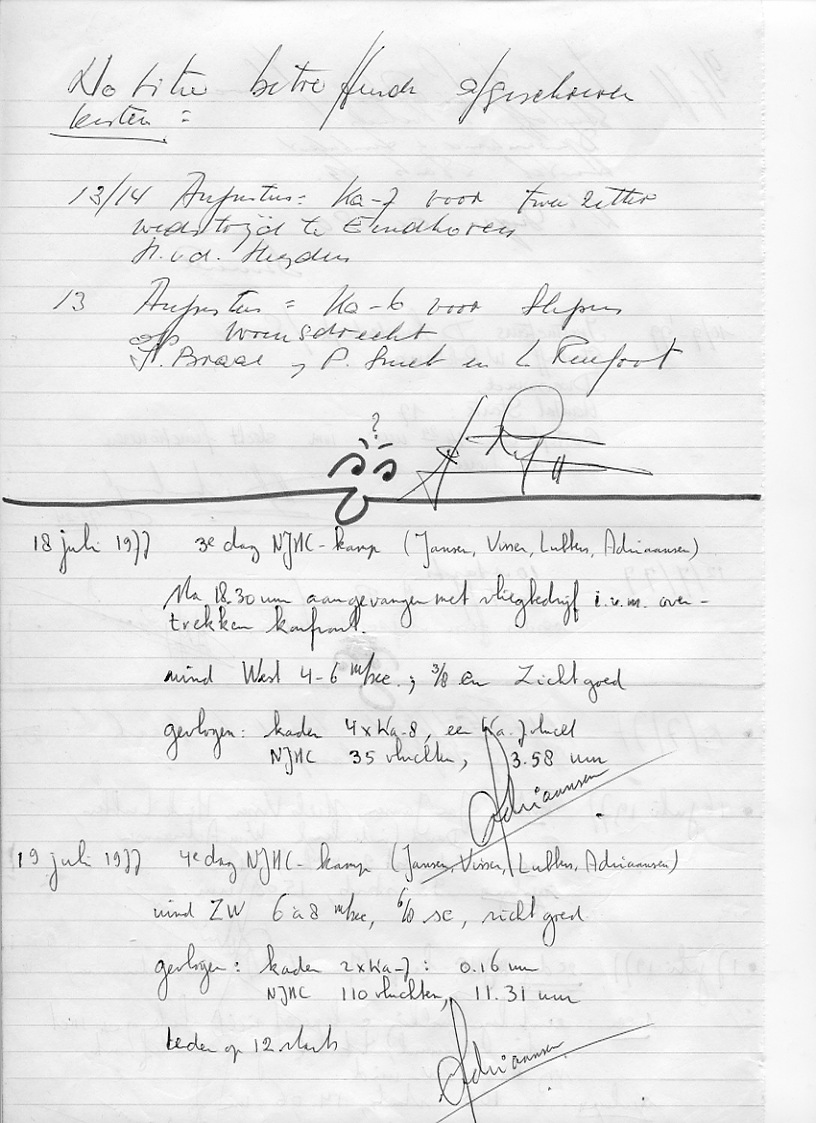 Notitie betreffende afgeschreven
kisten =
13/14 Augustus = Ka-7 voor twee zitter
wedstrijd te Eindhoven
H. v.d. Heyden
13 Augustus = Ka-6 voor slepen
op Woensdrecht
P. Smet en L.
?
18 juli 1977 3e dag NJHC-kamp (Jansen, Visser, Lubbers, Adriaansen)
Na 18.30 uur aangevangen met vliegbedrijf i.v.m. over-
trekken koufront.
wind West 4-6 m/sec.; 3/8 cu Zicht goed
gevlogen: kader 4xKa-8, een Ka-7 vlucht
NJHC 35 vluchten, 3.58 uur
Adriaansen
19 juli 1977 4e dag NJHC-kamp (Jansen, Visser, Lubbers, Adriaansen)
wind ZW 6 à 8 m/sec, 6/8 sc, zicht goed
gevlogen: kader 2xKa-7: 0.16 uur
NJHC 110 vluchten, 11.31 uur
op 12 starts
Adriaansen